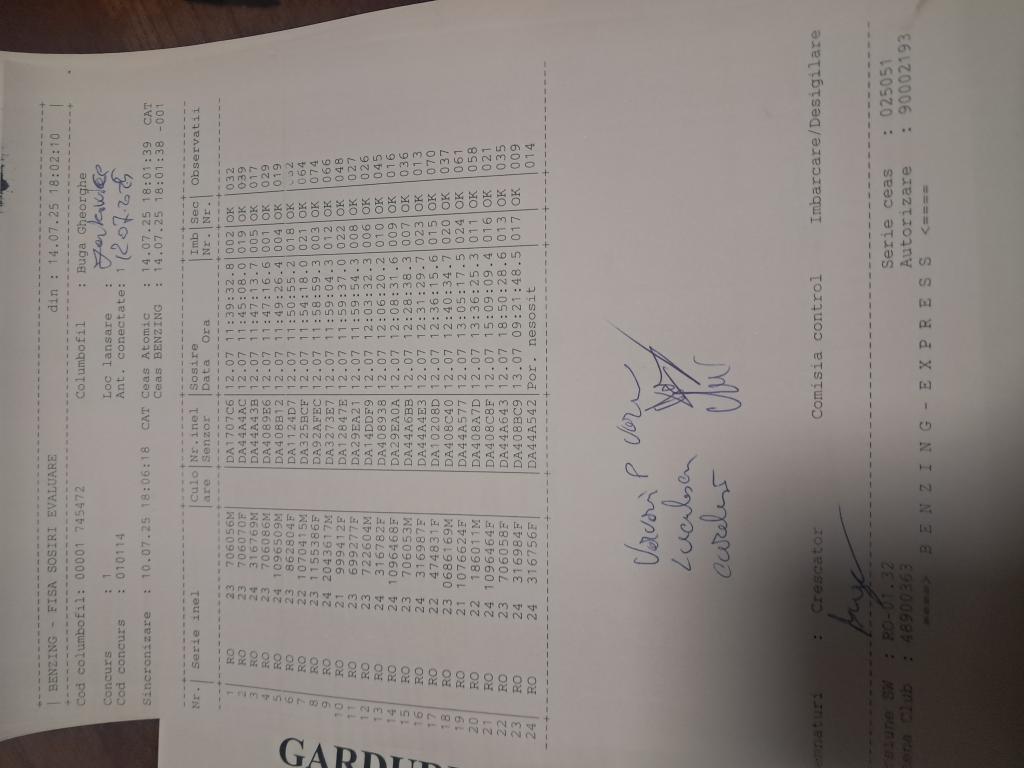 | BENZING - FISA SOSIRI EVALUARE din : 14.07.25 18:02:10 |
Cod columbofil: 00001 745472 Columbofil : Buga Gheorghe
Concurs : 1 Loc lansare :
Cod concurs : 010114 Ant. conectate: 1
Sincronizare : 10.07.25 18:06:18 CAT Ceas Atomic : 14.07.25 18:01:39 CAT
Ceas BENZING : 14.07.25 18:01:38 -001
Nr.| Serie inel |Culo|Nr.inel |Sosire |Imb|Sec| Observatii
|are |Senzor |Data Ora |Nr |Nr.|
1 RO 23 706056M DA1707C6 12.07 11:39:32.8 002 OK 032
2 RO 23 706070F DA44A4AC 12.07 11:45:08.0 019 OK 039
3 RO 24 316769M DA44A43B 12.07 11:47:13.7 005 OK 017
4 RO 23 706086M DA4089E6 12.07 11:47:16.6 001 OK 029
5 RO 24 1096509M DA408B12 12.07 11:49:26.4 004 OK 019
6 RO 23 862804F DA1124D7 12.07 11:50:55.2 018 OK
7 RO 22 1070415M DA325BCF 12.07 11:54:18.0 021 OK 064
8 RO 23 1155386F DA92AFEC 12.07 11:58:59.3 003 OK 074
9 RO 24 2043617M DA3273E7 12.07 11:59:04.3 012 OK 066
10 RO 21 999412F DA12847E 12.07 11:59:37.0 022 OK 048
11 RO 23 699277F DA29EA21 12.07 11:59:54.3 008 OK 027
12 RO 23 722604M DA14DDF9 12.07 12:03:32.3 006 OK 026
13 RO 24 316782F DA408938 12.07 12:06:20.2 010 OK 045
14 RO 24 1096468F DA29EA0A 12.07 12:08:31.6 009 OK 016
15 RO 23 706053M DA44A6BB 12.07 12:28:38.3 007 OK 036
16 RO 24 316987F DA44A4E3 12.07 12:31:39.7 023 OK 013
17 RO 22 474831F DA10208D 12.07 12:36:15.6 015 OK 070
18 RO 23 1068619M DA408C40 12.07 12:40:34.7 020 OK 037
19 RO 21 1076624F DA44A577 12.07 13:05:17.5 024 OK 061
20 RO 22 186011M DA408A7D 12.07 13:36:25.3 011 OK 058
21 RO 24 1096464F DA408C8F 12.07 15:09:09.4 016 OK 021
22 RO 23 706058F DA44A643 12.07 18:50:28.6 013 OK 035
23 RO 24 316984F DA408BC9 13.07 09:21:48.5 017 OK 009
24 RO 24 316756F DA44A542 Por. nesosit 014
: Crescator Comisia control Imbarcare/Desigilare
SW : RO-01.32 Serie ceas : 025051
Club : 48900363 Autorizare : 90002193
====> B E N Z I N G - E X P R E S S <====